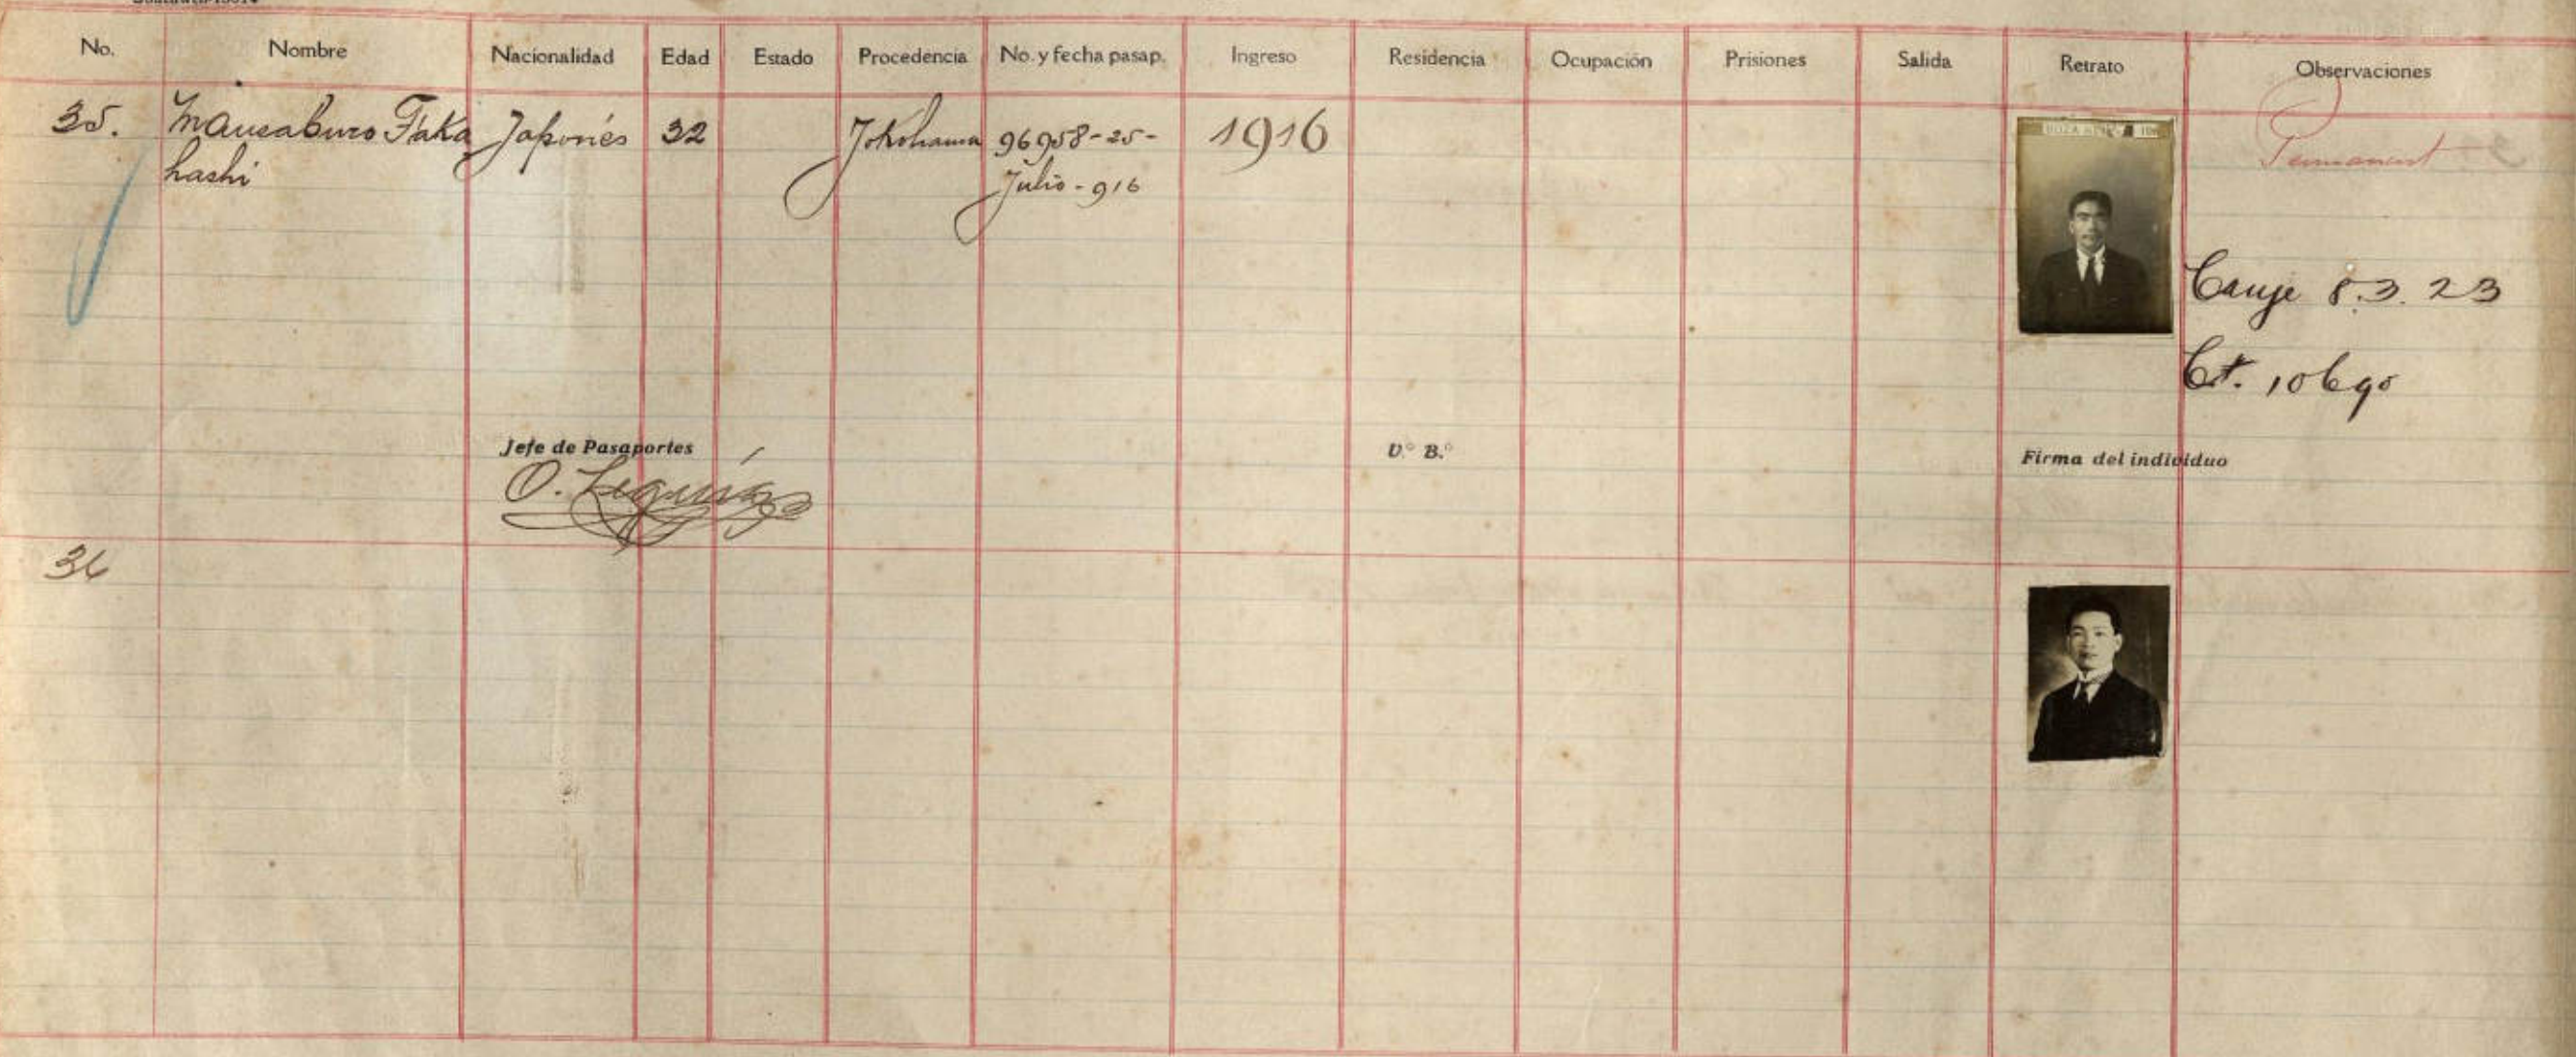 No. Nombre Nacionalidad Edad Estado Procedencia No. y fecha pasap. Ingreso Residencia Ocupación Prisiones Salida Retrato Observaciones
35. Mansaburo Taka Japonés 32 Yokohama 96958-25- 1916
hashi Julio-916
Canje 8.3.23
Ct. 10690
Jefe de Pasaportes V.° B.° Firma del individuo
O. Leguía
36